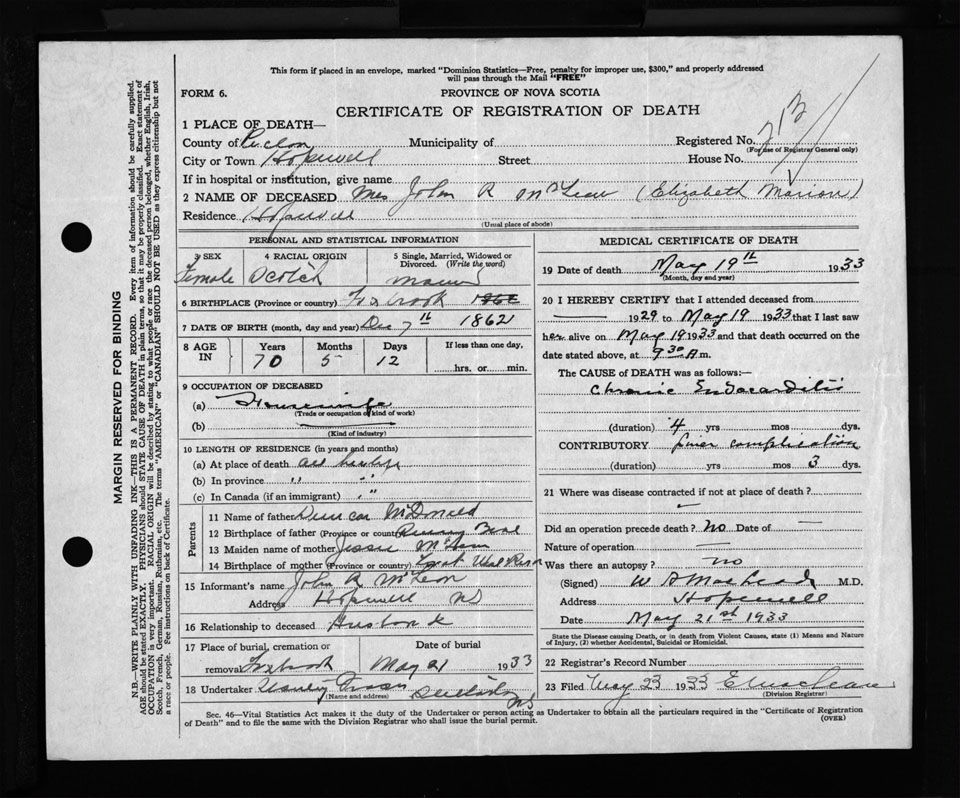 This form if placed in an envelope, marked "Dominion Statistics—Free, penalty for improper use, $300," and properly addressed
will pass through the Mail "FREE"
FORM 6.
PROVINCE OF NOVA SCOTIA
CERTIFICATE OF REGISTRATION OF DEATH
1 PLACE OF DEATH—
County of Pictou Municipality of Registered No. 213
(For use of Registrar General only)
City or Town Hopewell Street House No.
If in hospital or institution, give name
2 NAME OF DECEASED Mrs John R McLean (Elizabeth Marion)
Residence Hopewell
(Usual place of abode)
PERSONAL AND STATISTICAL INFORMATION
3 SEX 4 RACIAL ORIGIN 5 Single, Married, Widowed or
Divorced. (Write the word)
Female Scotch
6 BIRTHPLACE (Province or country) 1862
7 DATE OF BIRTH (month, day and year) Dec 7th 1862
8 AGE IN Years Months Days If less than one day,
70 5 12 hrs. or min.
9 OCCUPATION OF DECEASED
(a) Housewife
(Trade or occupation or kind of work)
(b)
(Kind of industry)
10 LENGTH OF RESIDENCE (in years and months)
(a) At place of death
(b) In province " "
(c) In Canada (if an immigrant) " "
Parents
11 Name of father Duncan McDonald
12 Birthplace of father (Province or country)
13 Maiden name of mother Jessie
14 Birthplace of mother (Province or country)
15 Informant's name John R McLean
Address Hopewell NS
16 Relationship to deceased Husband
17 Place of burial, cremation or Date of burial
removal Foxbrook May 21 1933
18 Undertaker
(Name and address)
NS
MEDICAL CERTIFICATE OF DEATH
19 Date of death May 19th 1933
(Month, day and year)
20 I HEREBY CERTIFY that I attended deceased from
1929 to May 19 1933 that I last saw
her alive on May 19 1933 and that death occurred on the
date stated above, at 9 30 A.m.
The CAUSE of DEATH was as follows:—
Chronic Endocarditis
(duration) 4 yrs mos dys.
CONTRIBUTORY complication
(duration) yrs mos 3 dys.
21 Where was disease contracted if not at place of death?
Did an operation precede death? No Date of —
Nature of operation —
Was there an autopsy? No
(Signed) M.D.
Address Hopewell
Date May 21st 1933
State the Disease causing Death, or in death from Violent Causes, state (1) Means and Nature
of Injury, (2) whether Accidental, Suicidal or Homicidal.
22 Registrar's Record Number
23 Filed May 23 1933
(Division Registrar)
Sec. 46—Vital Statistics Act makes it the duty of the Undertaker or person acting as Undertaker to obtain all the particulars required in the "Certificate of Registration
of Death" and to file the same with the Division Registrar who shall issue the burial permit.
(OVER)
MARGIN RESERVED FOR BINDING
N.B.—WRITE PLAINLY WITH UNFADING INK—THIS IS A PERMANENT RECORD. Every item of information should be carefully supplied.
AGE should be stated EXACTLY. PHYSICIANS should STATE CAUSE OF DEATH in plain terms, so that it may be properly classified. Exact statement of
OCCUPATION is very important. RACIAL ORIGIN will be described by stating to what people or race the deceased person belonged, whether English, Irish,
Scotch, French, German, Russian, Ruthenian, etc. The terms "AMERICAN" or "CANADIAN" SHOULD NOT BE USED as they express citizenship but not
a race or people. See instructions on back of Certificate.